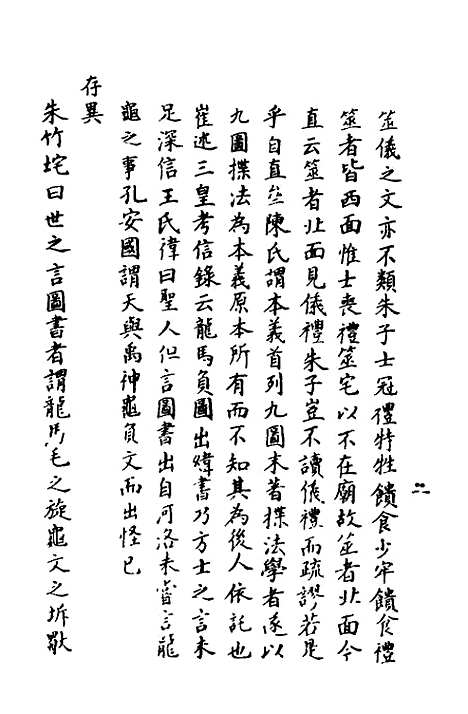 筮儀之文亦不類朱子士冠禮特牲饋食少牢饋食禮
筮者皆西面惟士喪禮筮宅以不在廟故筮者北面今
直云筮者北面見儀禮朱子豈不讀儀禮而疏謬若是
乎自直齋陳氏謂本義首列九圖末著揲法學者遂以
九圖揲法為本義原本所有而不知其為後人依託也
崔述三皇考信錄云龍馬負圖出緯書乃方士之言未
足深信王氏禕曰聖人但言圖書出自河洛未嘗言龍
龜之事孔安國謂天與禹神龜負文而出怪已
存異
朱竹垞曰世之言圖書者謂龍馬毛之旋龜文之坼歟